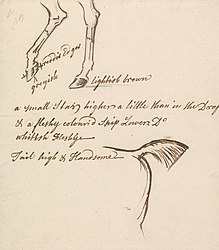 greyish
lightish brown
a small Star higher a little than in the Draw
& a fleshy colour'd Snip Lower Do
whitish Fleshy
Tail high & Handsome